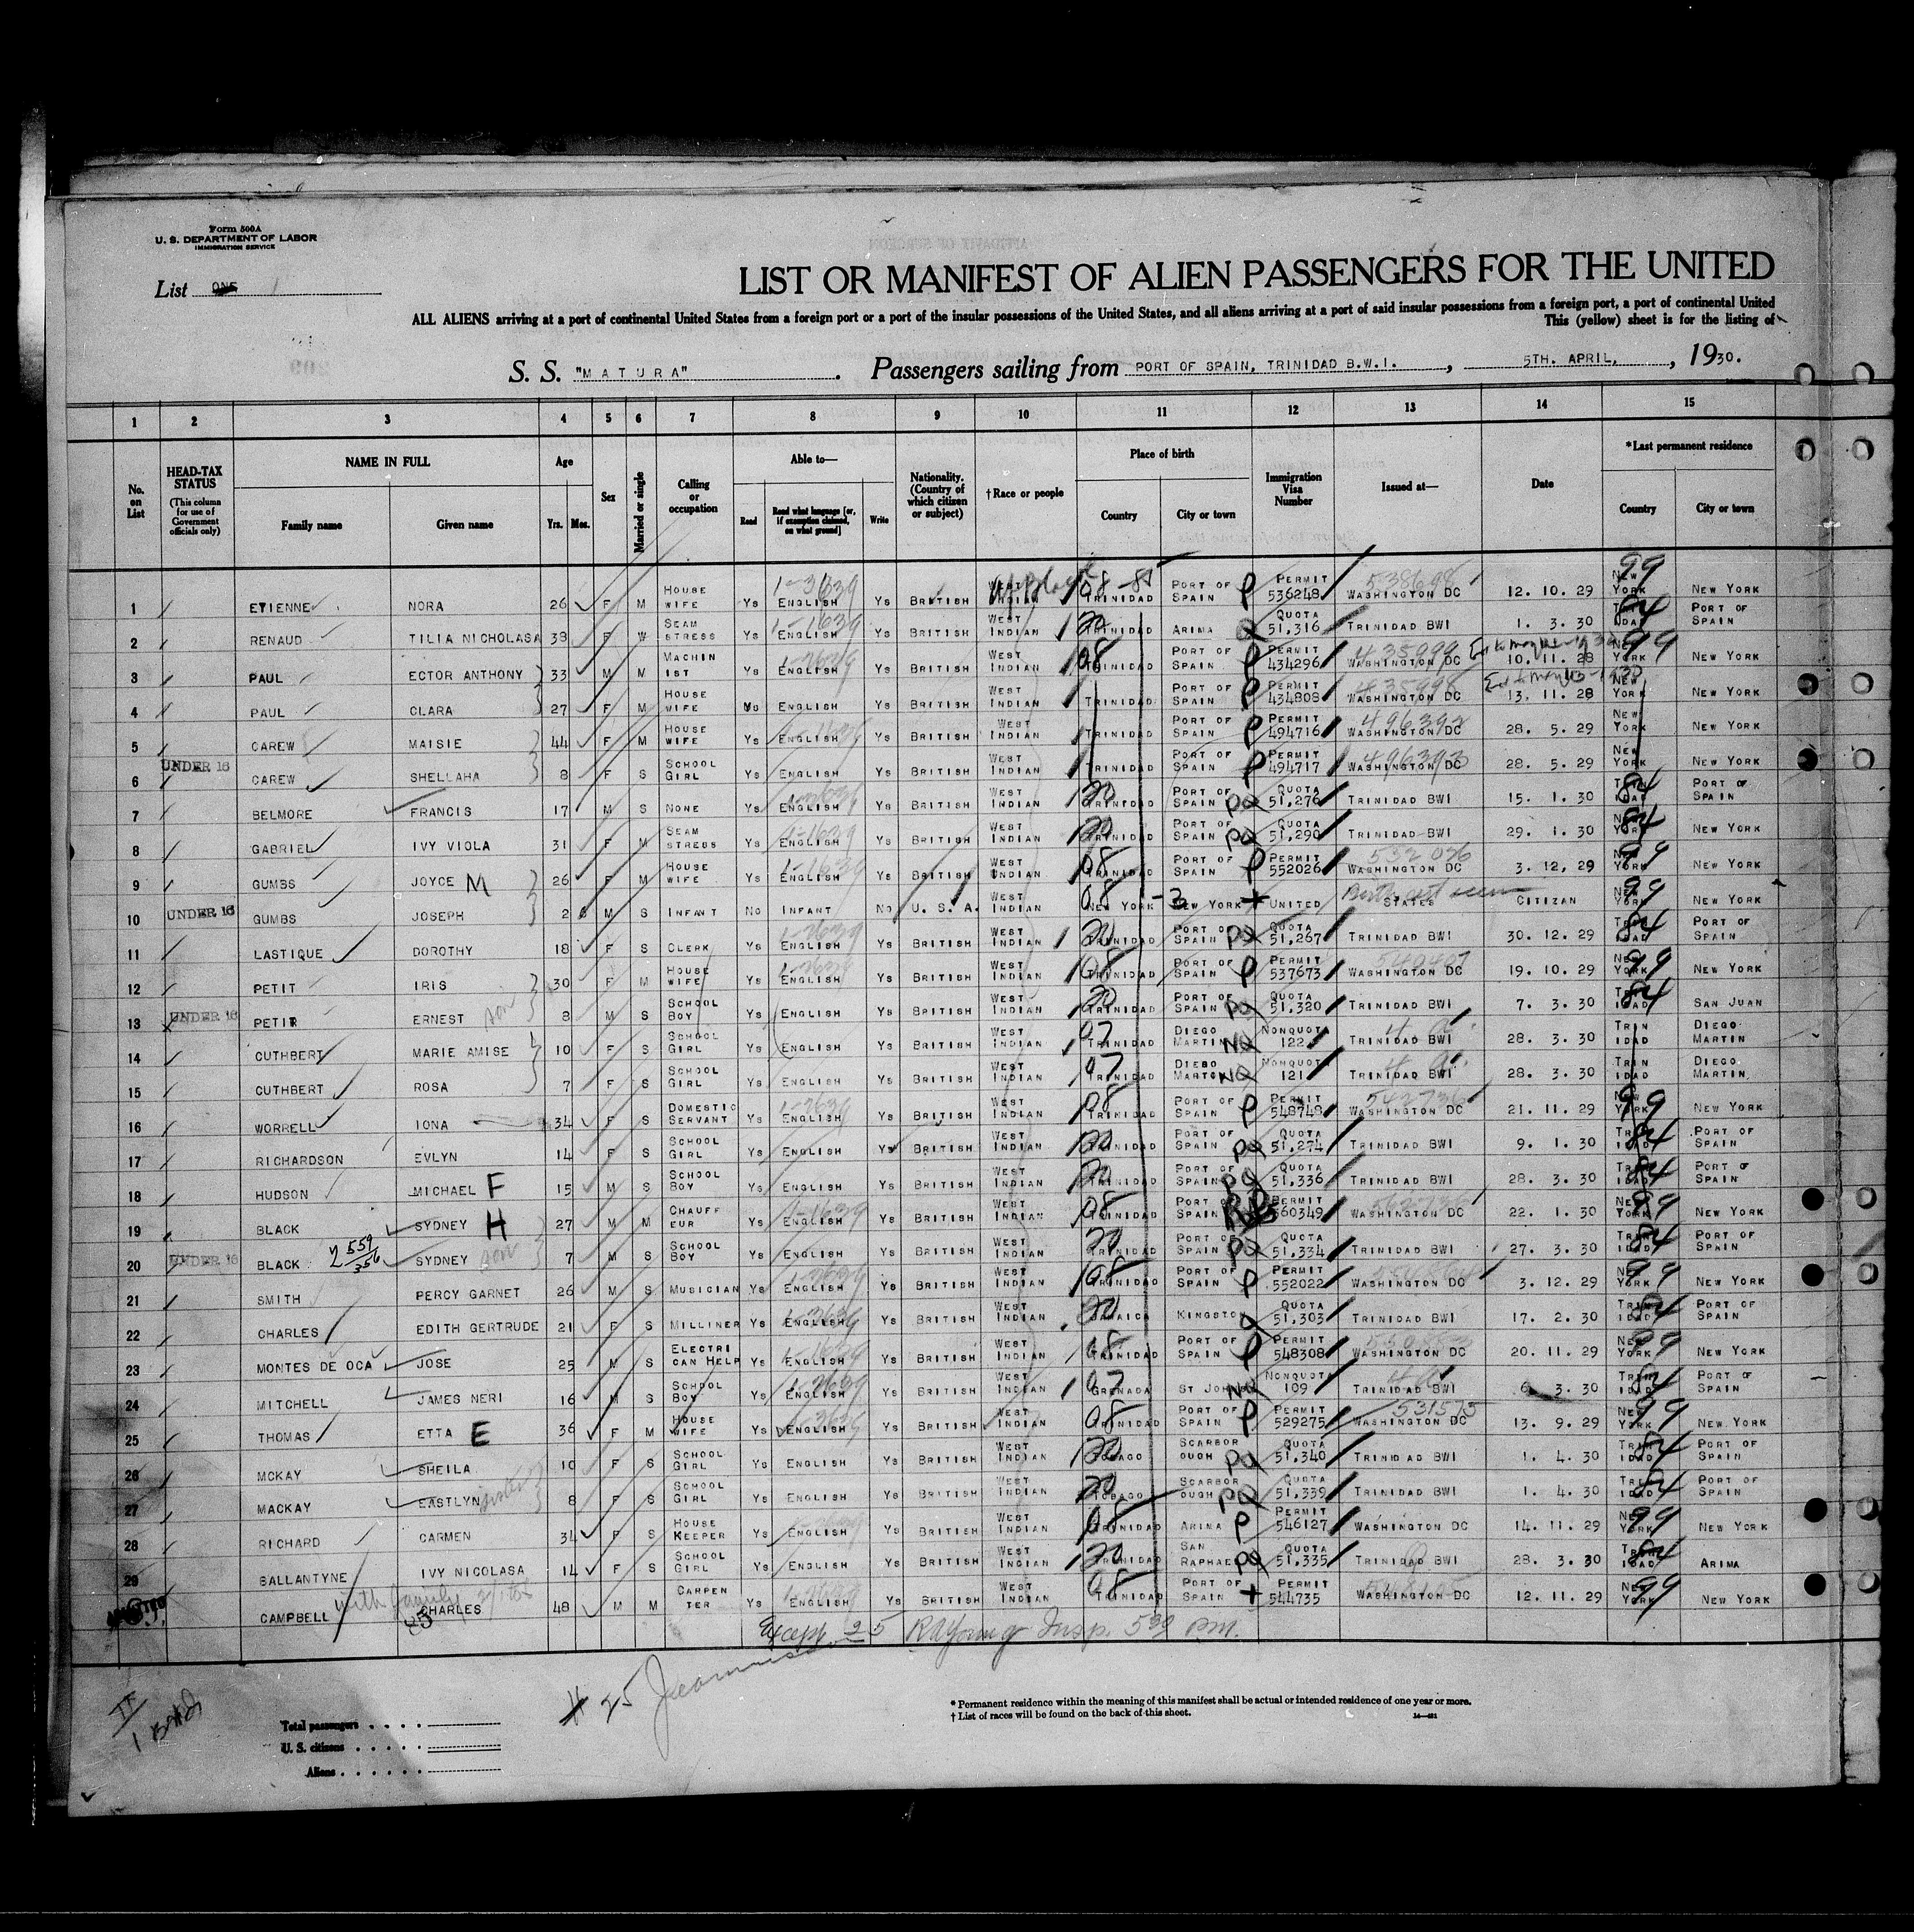 Form 500A
U. S. DEPARTMENT OF LABOR
IMMIGRATION SERVICE
List ONE 1
LIST OR MANIFEST OF ALIEN PASSENGERS FOR THE UNITED
ALL ALIENS arriving at a port of continental United States from a foreign port or a port of the insular possessions of the United States, and all aliens arriving at a port of said insular possessions from a foreign port, a port of continental United
This (yellow) sheet is for the listing of
S. S. "MATURA". Passengers sailing from PORT OF SPAIN, TRINIDAD B.W.I., 5TH. APRIL, , 1930.
1 2 3 4 5 6 7 8 9 10 11 12 13 14 15
No. on List HEAD-TAX STATUS (This column for use of Government officials only) NAME IN FULL Family name Given name Age Yrs. Mos. Sex Married or single Calling or occupation Able to— Read Read what language [or, if exemption claimed, on what ground] Write Nationality. (Country of which citizen or subject) †Race or people Place of birth Country City or town Immigration Visa Number Issued at— Date *Last permanent residence Country City or town
1 ETIENNE NORA 26 F M HOUSE WIFE Ys ENGLISH Ys BRITISH WEST INDIAN TRINIDAD PORT OF SPAIN PERMIT 536248 WASHINGTON DC 12. 10. 29 NEW YORK NEW YORK
2 RENAUD TILIA NICHOLASA 38 F W SEAM STRESS Ys ENGLISH Ys BRITISH WEST INDIAN TRINIDAD ARIMA QUOTA 51,316 TRINIDAD BWI 1. 3. 30 TRIN IDAD PORT OF SPAIN
3 PAUL ECTOR ANTHONY 33 M M MACHIN IST Ys ENGLISH Ys BRITISH WEST INDIAN TRINIDAD PORT OF SPAIN PERMIT 434296 WASHINGTON DC 10. 11. 28 NEW YORK NEW YORK
4 PAUL CLARA 27 F M HOUSE WIFE ENGLISH Ys BRITISH WEST INDIAN TRINIDAD PORT OF SPAIN PERMIT 434808 WASHINGTON DC 13. 11. 28 NEW YORK NEW YORK
5 CAREW MAISIE 44 F M HOUSE WIFE Ys ENGLISH Ys BRITISH WEST INDIAN TRINIDAD PORT OF SPAIN PERMIT 494716 496392 WASHINGTON DC 28. 5. 29 NEW YORK NEW YORK
6 UNDER 16 CAREW SHELLAHA 8 F S SCHOOL GIRL Ys ENGLISH Ys BRITISH WEST INDIAN TRINIDAD PORT OF SPAIN PERMIT 494717 496393 WASHINGTON DC 28. 5. 29 NEW YORK NEW YORK
7 BELMORE FRANCIS 17 M S NONE Ys ENGLISH Ys BRITISH WEST INDIAN TRINIDAD PORT OF SPAIN QUOTA 51,276 TRINIDAD BWI 15. 1. 30 TRIN IDAD PORT OF SPAIN
8 GABRIEL IVY VIOLA 31 F M SEAM STRESS Ys ENGLISH Ys BRITISH WEST INDIAN TRINIDAD PORT OF SPAIN QUOTA 51,290 TRINIDAD BWI 29. 1. 30 NEW YORK NEW YORK
9 GUMBS JOYCE M 26 F M HOUSE WIFE Ys ENGLISH Ys BRITISH WEST INDIAN TRINIDAD PORT OF SPAIN PERMIT 552026 WASHINGTON DC 3. 12, 29 NEW YORK NEW YORK
10 UNDER 16 GUMBS JOSEPH 2 M S INFANT No INFANT No U. S. A. WEST INDIAN NEW YORK NEW YORK UNITED STATES CITIZAN NEW YORK NEW YORK
11 LASTIQUE DOROTHY 18 F S CLERK Ys ENGLISH Ys BRITISH WEST INDIAN TRINIDAD PORT OF SPAIN QUOTA 51,267 TRINIDAD BWI 30. 12. 29 TRIN IDAD PORT OF SPAIN
12 PETIT IRIS 30 F M HOUSE WIFE Ys ENGLISH Ys BRITISH WEST INDIAN TRINIDAD PORT OF SPAIN PERMIT 537673 WASHINGTON DC 19. 10. 29 NEW YORK NEW YORK
13 UNDER 16 PETIT ERNEST son 8 M S SCHOOL BOY Ys ENGLISH Ys BRITISH WEST INDIAN TRINIDAD PORT OF SPAIN QUOTA 51,320 TRINIDAD BWI 7. 3. 30 TRIN IDAD SAN JUAN
14 CUTHBERT MARIE AMISE 10 F S SCHOOL GIRL Ys ENGLISH Ys BRITISH WEST INDIAN TRINIDAD DIEGO MARTIN NONQUOTA 122 TRINIDAD BWI 28. 3. 30 TRIN IDAD DIEGO MARTIN
15 CUTHBERT ROSA 7 F S SCHOOL GIRL Ys ENGLISH Ys BRITISH WEST INDIAN TRINIDAD DIEGO NONQUOTA 121 TRINIDAD BWI 28. 3. 30 TRIN IDAD DIEGO MARTIN
16 WORRELL IONA 34 F S DOMESTIC SERVANT Ys ENGLISH Ys BRITISH WEST INDIAN TRINIDAD PORT OF SPAIN PERMIT 548748 542736 WASHINGTON DC 21. 11. 29 NEW YORK NEW YORK
17 RICHARDSON EVLYN 14 F S SCHOOL GIRL Ys ENGLISH Ys BRITISH WEST INDIAN TRINIDAD PORT OF SPAIN QUOTA 51,274 TRINIDAD BWI 9. 1. 30 TRIN IDAD PORT OF SPAIN
18 HUDSON MICHAEL F 15 M S SCHOOL BOY Ys ENGLISH Ys BRITISH WEST INDIAN TRINIDAD PORT OF SPAIN QUOTA 51,336 TRINIDAD BWI 28. 3. 30 TRIN IDAD PORT OF SPAIN
19 BLACK SYDNEY H 27 M M CHAUFF EUR Ys ENGLISH Ys BRITISH WEST INDIAN TRINIDAD PORT OF SPAIN PERMIT 560349 WASHINGTON DC 22. 1. 30 NEW YORK NEW YORK
20 UNDER 16 BLACK SYDNEY son 7 M S SCHOOL BOY Ys ENGLISH Ys BRITISH WEST INDIAN TRINIDAD PORT OF SPAIN QUOTA 51,334 TRINIDAD BWI 27. 3. 30 TRIN IDAD PORT OF SPAIN
21 SMITH PERCY GARNET 26 M S MUSICIAN Ys ENGLISH Ys BRITISH WEST INDIAN TRINIDAD PORT OF SPAIN PERMIT 552022 WASHINGTON DC 3. 12. 29 NEW YORK NEW YORK
22 CHARLES EDITH GERTRUDE 21 F S MILLINER Ys ENGLISH Ys BRITISH WEST INDIAN JAMAICA KINGSTON QUOTA 51,303 TRINIDAD BWI 17. 2. 30 TRIN IDAD PORT OF SPAIN
23 MONTES DE OCA JOSE 25 M S ELECTRI CAN HELP Ys ENGLISH Ys BRITISH WEST INDIAN TRINIDAD PORT OF SPAIN PERMIT 548308 WASHINGTON DC 20. 11. 29 NEW YORK NEW YORK
24 MITCHELL JAMES NERI 16 M S SCHOOL BOY Ys ENGLISH Ys BRITISH WEST INDIAN GRENADA ST JOHNS NONQUOTA 109 TRINIDAD BWI 6 3. 30 TRIN IDAD PORT OF SPAIN
25 THOMAS ETTA E 36 F M HOUSE WIFE Ys ENGLISH Ys BRITISH WEST INDIAN TRINIDAD PORT OF SPAIN PERMIT 529275 531575 WASHINGTON DC 13. 9. 29 NEW YORK NEW YORK
26 MCKAY SHEILA 10 F S SCHOOL GIRL Ys ENGLISH Ys BRITISH WEST INDIAN TOBAGO SCARBOR OUGH QUOTA 51,340 TRINIDAD BWI 1. 4. 30 TRIN IDAD PORT OF SPAIN
27 MACKAY EASTLYN sister 8 F S SCHOOL GIRL Ys ENGLISH Ys BRITISH WEST INDIAN TOBAGO SCARBOR OUGH QUOTA 51,339 TRINIDAD BWI 1. 4. 30 TRIN IDAD PORT OF SPAIN
28 RICHARD CARMEN 34 F S HOUSE KEEPER Ys ENGLISH Ys BRITISH WEST INDIAN TRINIDAD ARIMA PERMIT 546127 WASHINGTON DC 14. 11. 29 NEW YORK NEW YORK
29 BALLANTYNE IVY NICOLASA 14 F S SCHOOL GIRL Ys ENGLISH Ys BRITISH WEST INDIAN TRINIDAD SAN RAPHAEL QUOTA 51,335 TRINIDAD BWI 28. 3. 30 TRIN IDAD ARIMA
CAMPBELL with family CHARLES 48 M M CARPEN TER Ys ENGLISH Ys BRITISH WEST INDIAN TRINIDAD PORT OF SPAIN PERMIT 544735 WASHINGTON DC 12. 11. 29 NEW YORK NEW YORK
Except 25 RA Young Insp. 5 30 pm.
# 25
Total passengers
U. S. citizens
Aliens
* Permanent residence within the meaning of this manifest shall be actual or intended residence of one year or more.
† List of races will be found on the back of this sheet.